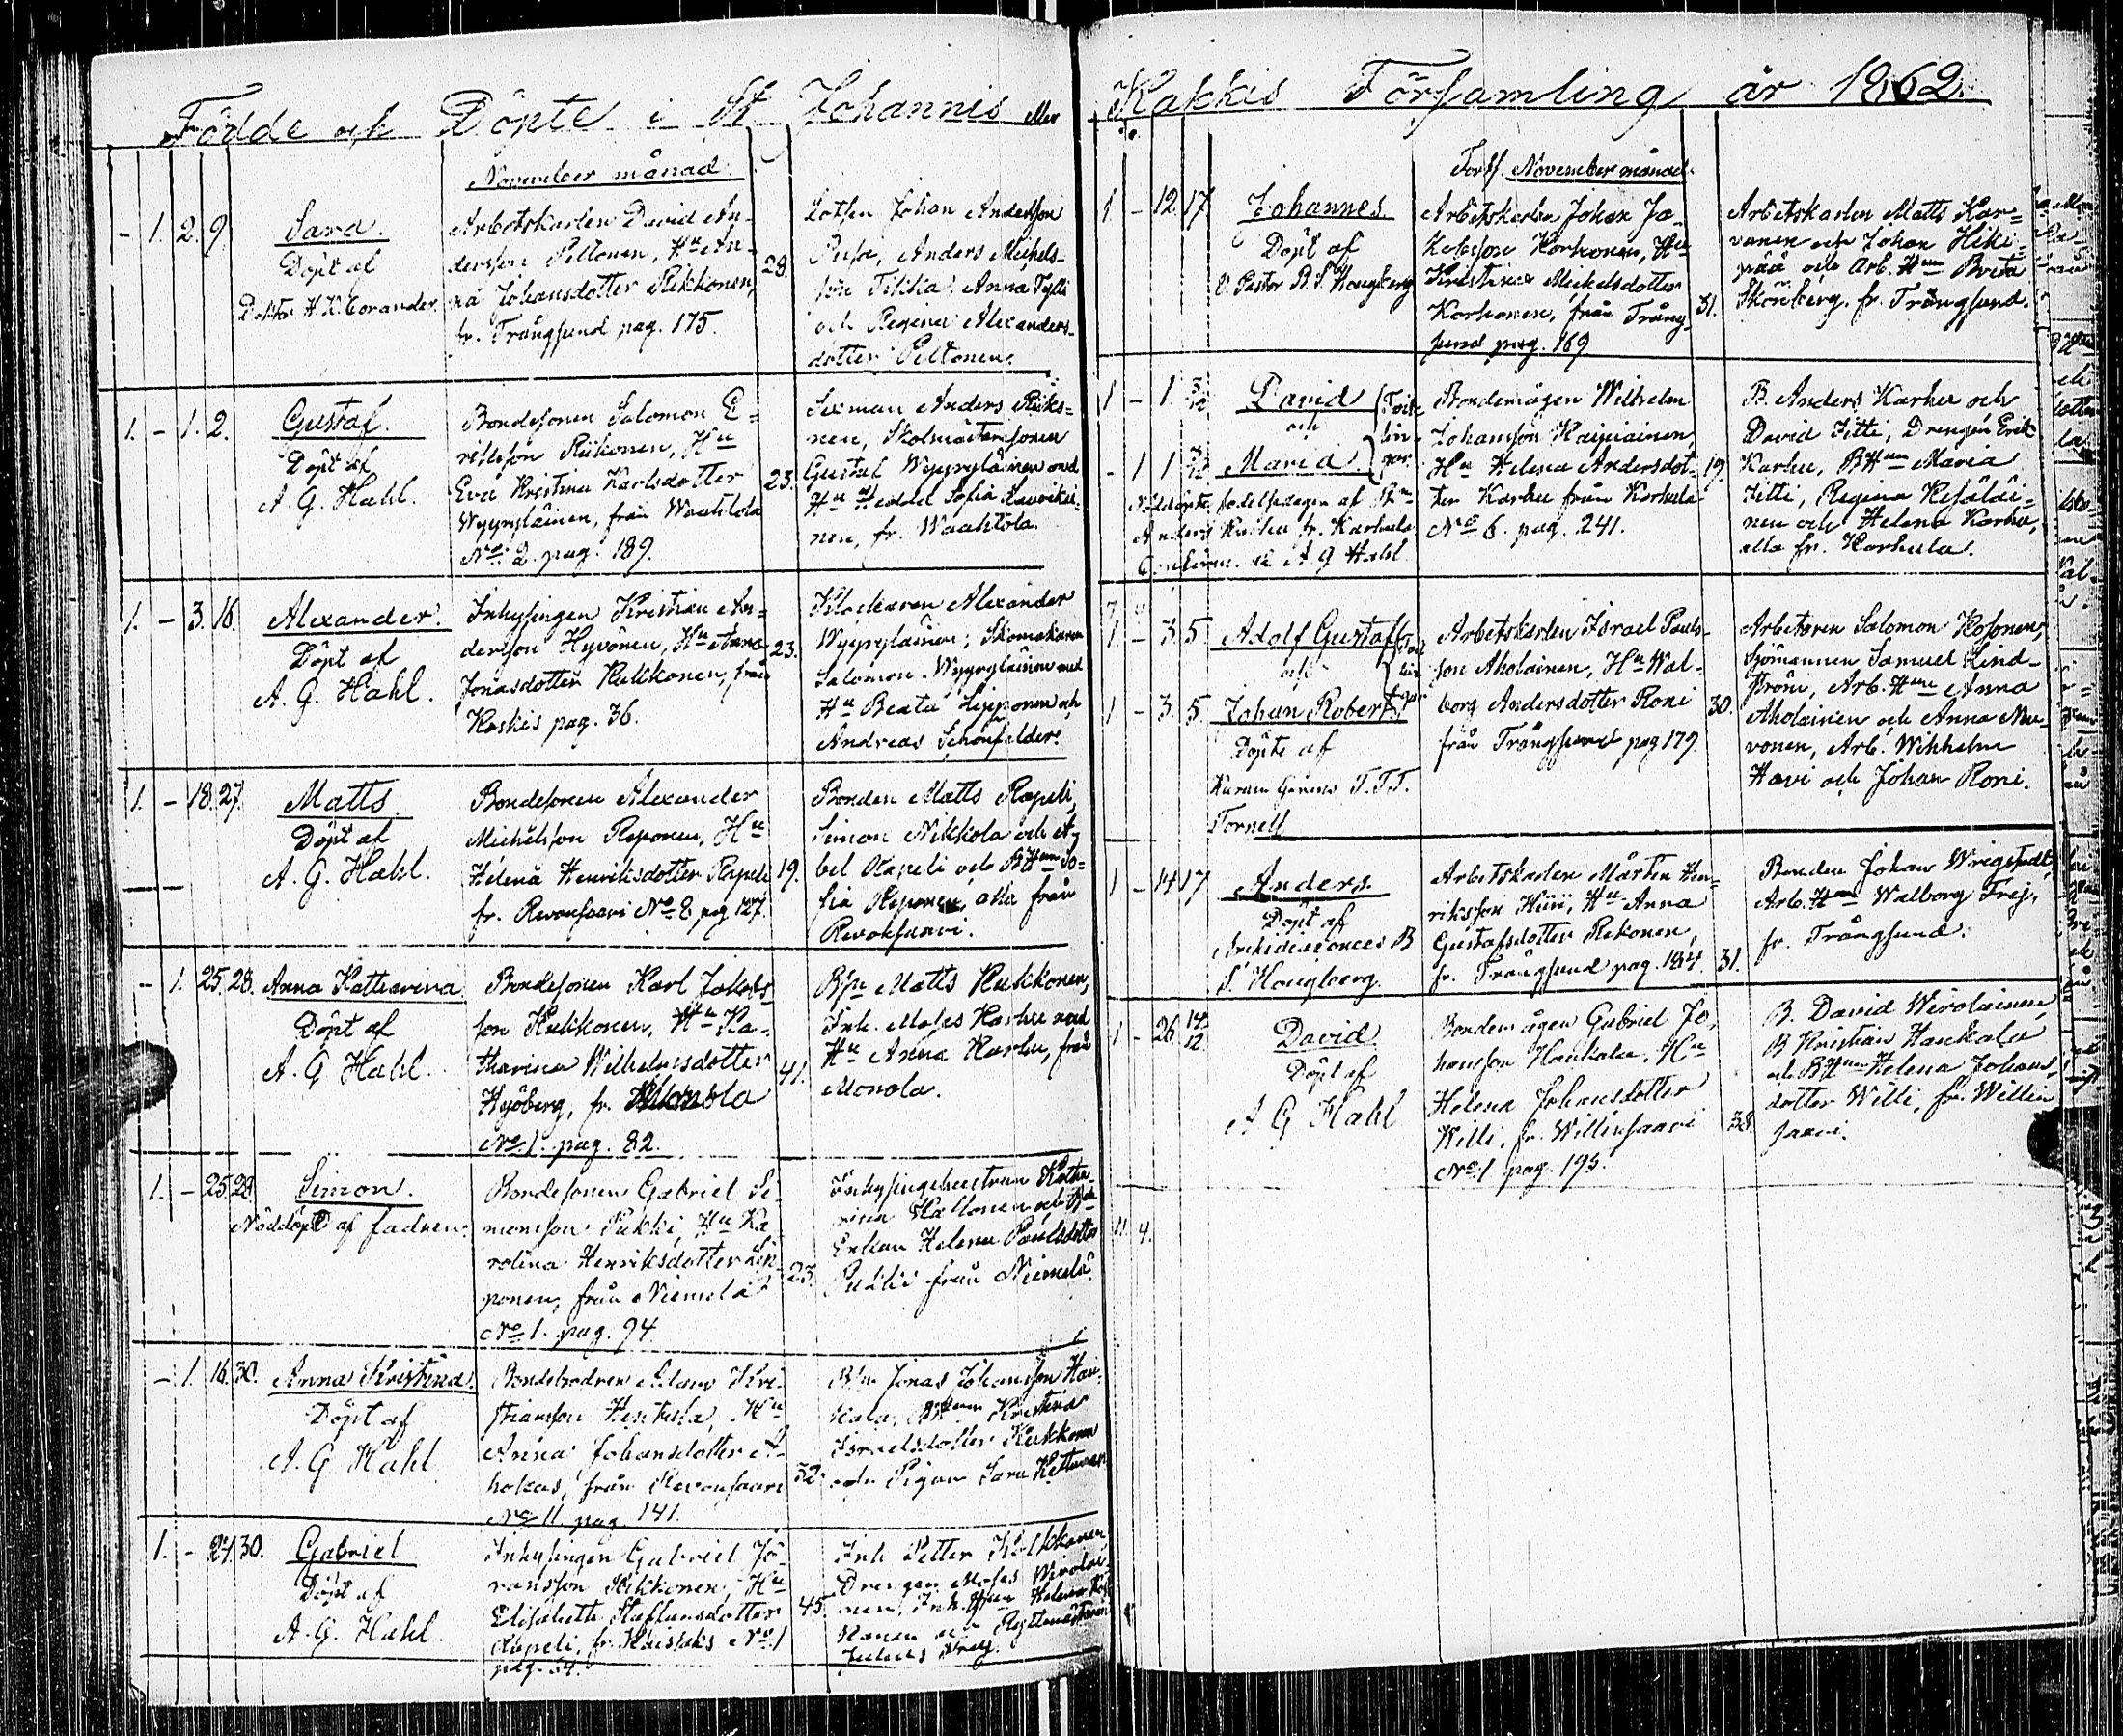 Födde och Döpte i St Johannis eller Kakkis Församling år 1862.
November månad.
- 1. 2. 9.
Sara.
Döpt af
Doktor H. K. Corander.
Arbetskarlen David An-
dersson Peltonen, Hu An-
na Johansdotter Kukkonen,
fr. Trångsund pag. 175.
29.
Lotsen Johan Andersson
Anders Michels-
son Anna Tylli
och Regina Alexanders-
dotter Peltonen.
1. - 1. 2.
Gustaf.
Döpt af
A. G. Hahl.
Bondesonen Salomon E-
riksson Riikonen, Hu
Eva Kristina Karlsdotter
Wyyryläinen, från Waahtola
No 2. pag. 189.
23.
Anders Riiko-
nen, Skolmästaresonen
Gustaf Wyyryläinen med
Hu Hedda Sofia
nen, fr. Waahtola.
1. - 3. 16.
Alexander.
Döpt af
A. G. Hahl.
Inhysingen Kristian An-
dersson Hyvönen, Hu Anna
Jonasdotter Kukkonen, från
Kaskis pag. 36.
23.
Klockaren Alexander
Wyyryläinen, Skomakaren
Salomon Wyyryläinen med
Hu Beata Lipponen och
Andreas Schönfelder.
1. - 18. 27.
Matts.
Döpt af
A. G. Hahl.
Bondesonen Alexander
Michelsson Reponen, Hu
Helena Henriksdotter Rapeli
fr. Revonsaari No 8 pag. 127.
19.
Bonden Matts Rapeli,
Simon Nikkola och A-
bel Rapeli och BHun So-
fia Reponen, alla från
Revonsaari.
- 1. 25. 28.
Anna Katharina
Döpt af
A. G. Hahl.
Bondesonen Karl Jakobs-
son Kukkonen, Hu Ka-
tharina Wilhelmsdotter
Hyöberg, fr. Monola
No 1. pag. 82.
41.
Bsn Matts Kukkonen,
Inh. Moses Karhu med
Hu Anna Karhu, från
Monola.
1. - 25. 28.
Simon.
Nöddöpt af fadren.
Bondesonen Gabriel Si-
monsson Pukki, Hu Ka-
rolina Henriksdotter Lip-
ponen, från Niemelä
No 1. pag. 94.
23.
Inhysingehustrun Katha-
rina och B-
Enkan Helena Paulsdotter
Pukki från Niemelä.
- 1. 16. 30.
Anna Kristina.
Döpt af
A. G. Hahl.
Bondebrodren Adam Kri-
stiansson Hu
Anna Johansdotter A-
hokas, från Revonsaari
No 11. pag. 141.
32.
Bsn Jonas Johansson Hau-
kala, BHun Kristina
Israelsdotter Kukkonen
och Pigan Sara Kettunen.
1. - 24. 30.
Gabriel
Döpt af
A. G. Hahl.
Inhysingen Gabriel Jö-
ransson Kukkonen, Hu
Elisabeth Staffansdotter
Rapeli, fr. Kaislaks No 1
pag. 54.
45.
Inh. Petter
Drengen Moses Wirolai-
nen, Inh. Hun Helena
och
Julius
Forts. November månad.
1. - 12. 17.
Johannes.
Döpt af
V. Pastor B. S. Hougberg
Arbetskarlen Johan Ja-
kobsson Korhonen, Hu
Kristina Michelsdotter
Korhonen, från Trång-
sund pag. 169
31.
Arbetskarlen Matts Kar-
vanen och Johan Hiki-
pää och Arb. Hun Brita
Skönberg. fr. Trångsund.
1 - 1. 3/12
David
och
- 1 1 3/12
Maria.
Tvil-
lin-
gar.
Nöddöpte födelsedagen af Bn
Anders Karhu fr. Karhula
Confirm. af A G Hahl.
Bondemågen Wilhelm
Johansson Kaipiainen,
Hu Helena Andersdot-
ter Karhu från Karhula
No 6. pag. 241.
19.
B. Anders Karhu och
David Jitti, Drengen Erik
Karhu, BHun Maria
Jitti, Regina Kesäläi-
nen och Helena Karhu,
alla fr. Karhula.
1 - 3. 5.
Adolf Gustaf
och
1 - 3. 5.
Johan Robert,
Tvil-
lin-
gar
Döpte af
T. F. F.
Tornell
Arbetskarlen Israel Pauls-
son Aholainen, Hu Wal-
borg Andersdotter Roni
från Trångsund pag 179
30.
Arbetaren Salomon Kosonen,
Sjömannen Samuel Lind-
ström, Arb. Hun Anna
Aholainen och Anna Mu-
vonen, Arb. Wilhelm
Havi och Johan Roni.
1 - 14 17
Anders.
Döpt af
B
S. Hougberg.
Arbetskarlen Mårten Hen-
riksson Hu Anna
Gustafsdotter Rekonen,
fr. Trångsund pag. 184.
31.
Bonden Johan Wrigstedt,
Arb. Hun Walborg Frej,
fr. Trångsund.
1 - 26 14/12
David.
Döpt af
A G Hahl
Bondemågen Gabriel Jo-
hansson Haukala, Hu
Helena Johansdotter
Willi, fr. Willinsaari
No 1 pag. 195.
38.
B. David Wirolainen,
B Kristian Haukala
och BHun Helena Johans-
dotter Willi, fr. Willin-
saari.
11. 4.